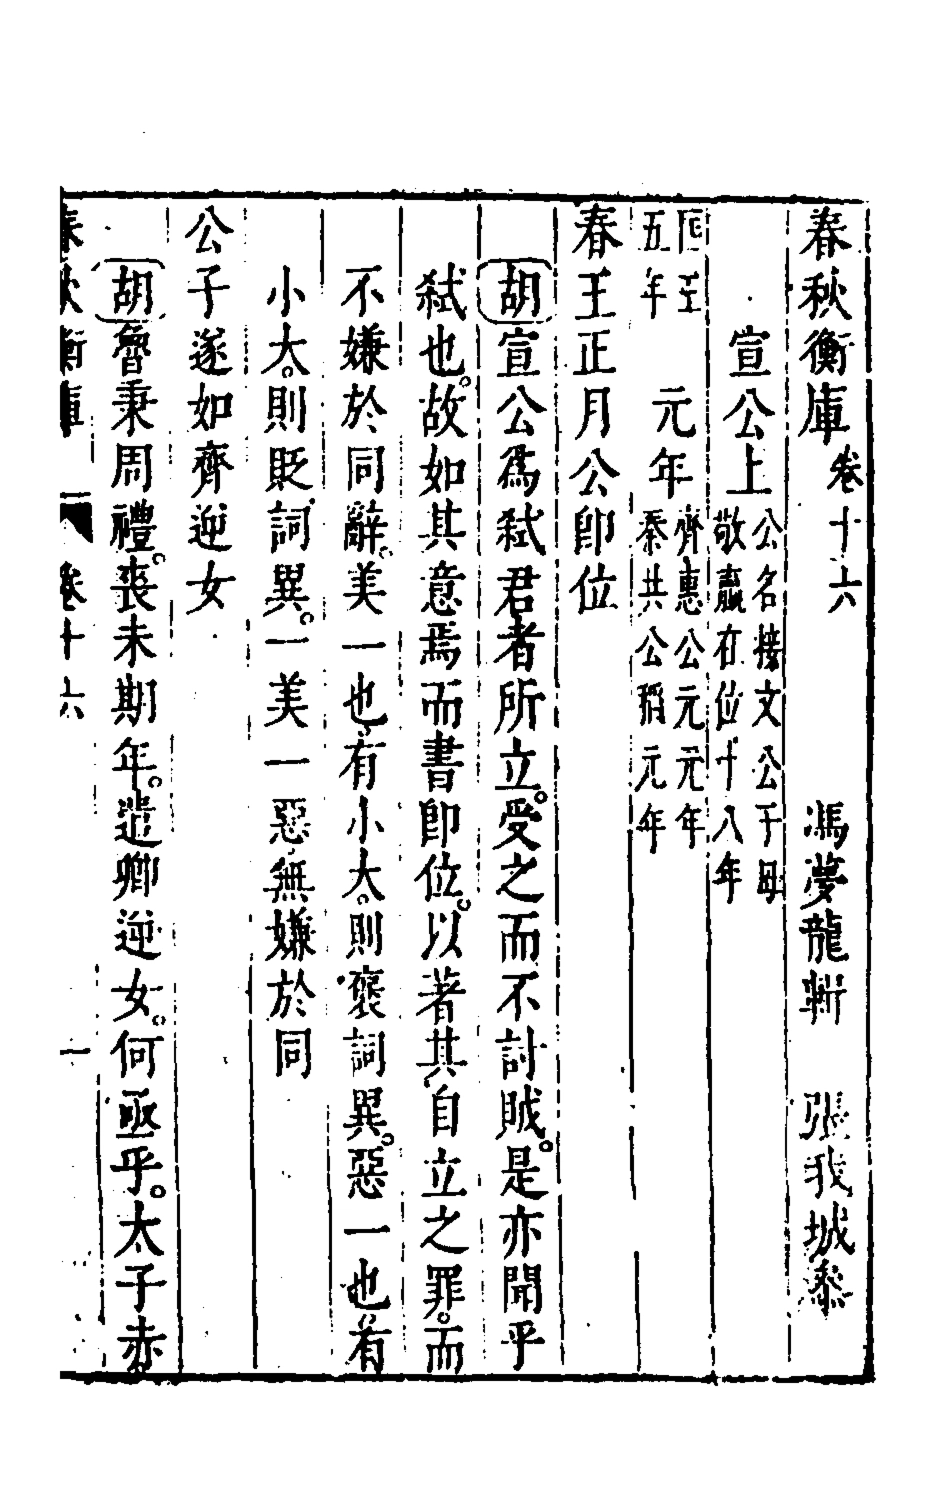 春秋衡庫卷十六　馮夢龍輯　張我城叅
宣公上公名接文公子母
敬嬴在位十八年
匡王
五年　元年齊惠公元元年
秦共公稻元年
春王正月公即位
胡宣公爲弒君者所立。受之而不討賊。是亦聞乎
弒也。故如其意焉而書即位。以著其自立之罪。而
不嫌於同辭。美一也有小大。則褒詞異。惡一也有
小大。則貶詞異。一美一惡無嫌於同
公子遂如齊逆女
胡魯秉周禮。喪未期年。遣卿逆女。何亟乎。太子赤。
春秋衡庫　卷十六　一